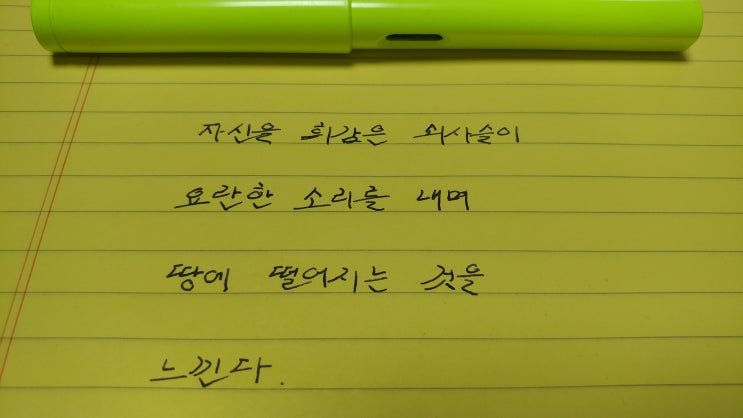 자신을 휘감은 쇠사슬이
요란한 소리를 내며
땅에 떨어지는 것을
느낀다.